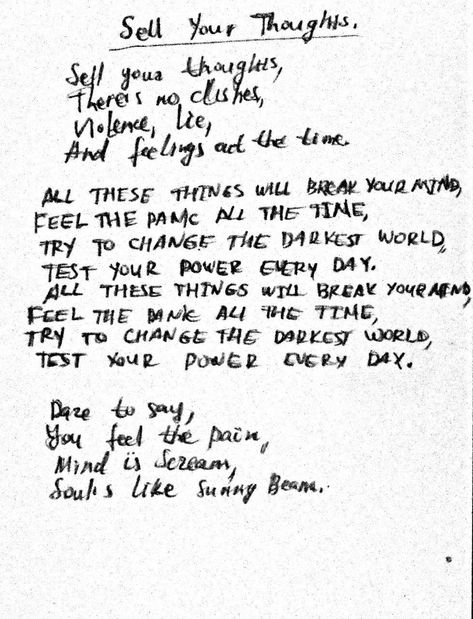 Sell Your Thoughts.
Sell your thoughts,
There's no clishes,
Violence, lie,
And feelings out the time.
ALL THESE THINGS WILL BREAK YOUR MIND,
FEEL THE PANIC ALL THE TIME,
TRY TO CHANGE THE DARKEST WORLD,
TEST YOUR POWER EVERY DAY.
ALL THESE THINGS WILL BREAK YOUR MIND,
FEEL THE PANIC ALL THE TIME,
TRY TO CHANGE THE DARKEST WORLD,
TEST YOUR POWER EVERY DAY.
Dare to say,
You feel the pain,
Mind is Scream,
Soul's like Sunny Beam.